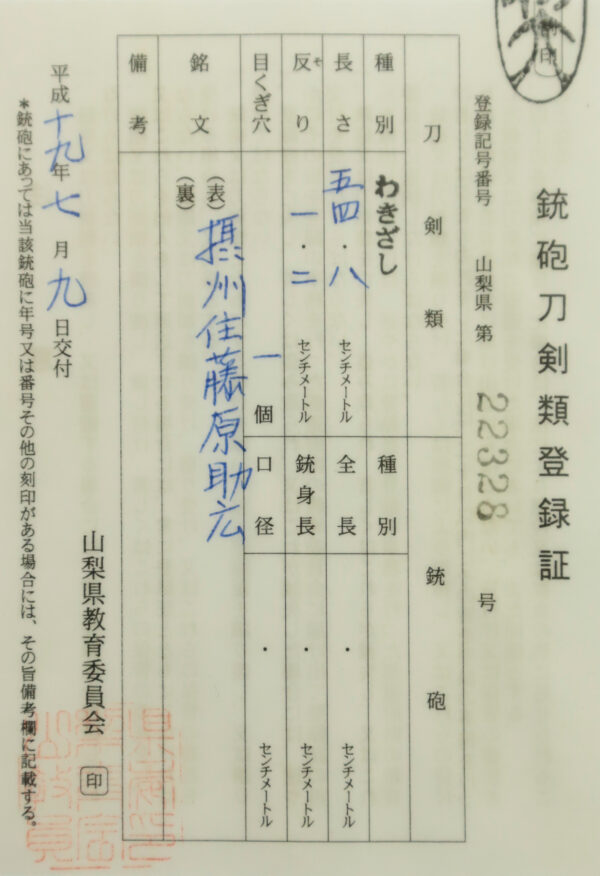 銃砲刀剣類登録証
登録記号番号 山梨県 第 22328 号
刀剣類
銃砲
種別 わきざし
種別
長さ 五四・八 センチメートル
全長 ・ センチメートル
反り 一・二 センチメートル
銃身長 ・ センチメートル
目くぎ穴 一 個
口径 ・ センチメートル
銘文 (表) 摂州住藤原助広
(裏)
備考
平成十九年七月九日交付
山梨県教育委員会 印
*銃砲にあっては当該銃砲に年号又は番号その他の刻印がある場合には、その旨備考欄に記載する。